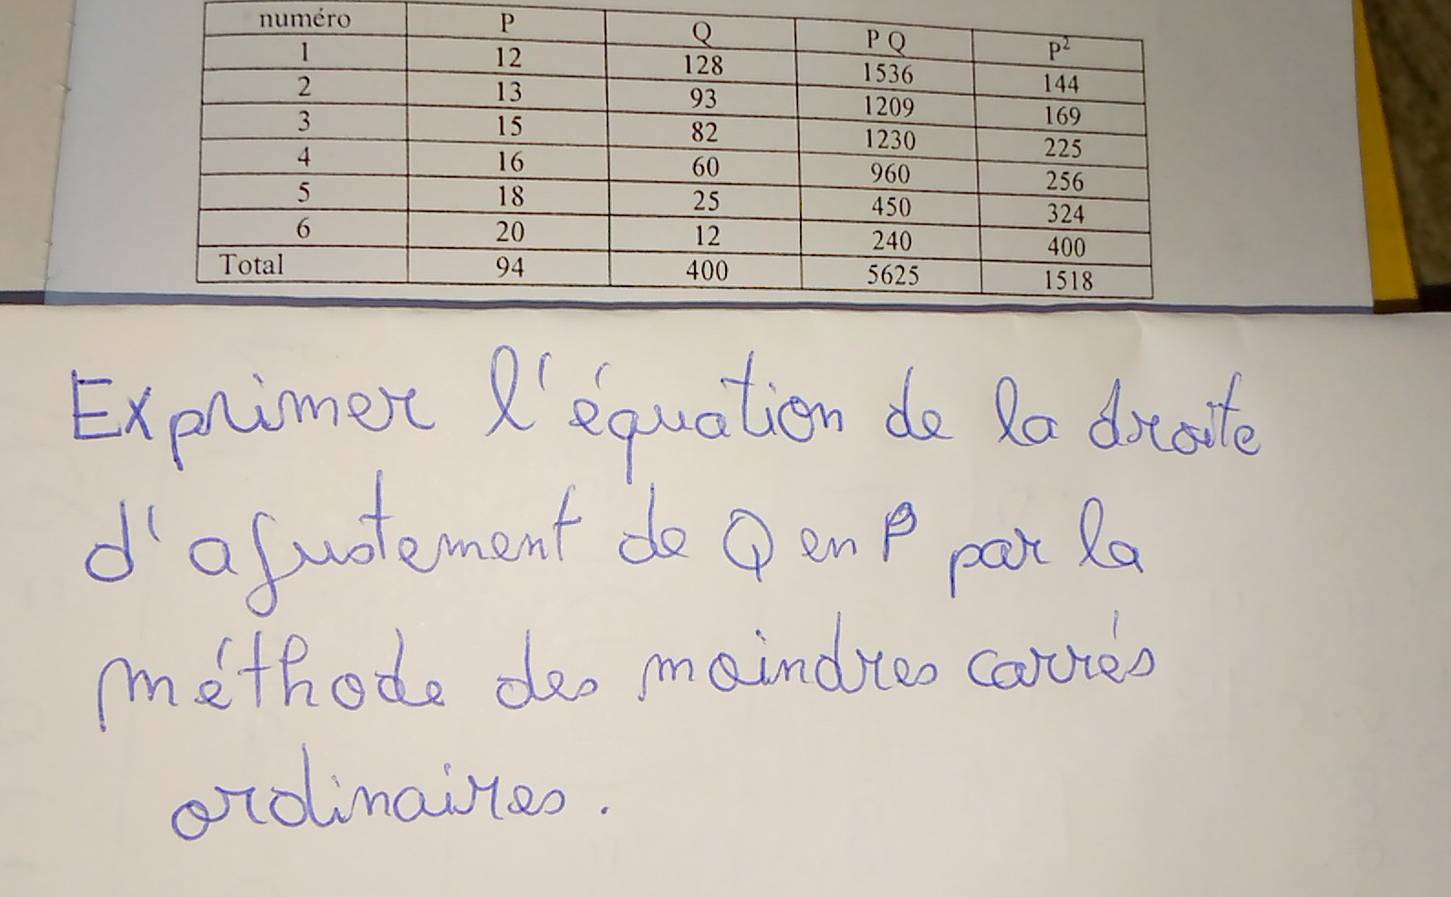 numéro P Q P Q P²
1 12 128 1536 144
2 13 93 1209 169
3 15 82 1230 225
4 16 60 960 256
5 18 25 450 324
6 20 12 240 400
Total 94 400 5625 1518
Exprimer l'équation de la droite
d'ajustement de Q en P par la
méthode des moindres carrés
ordinaires.